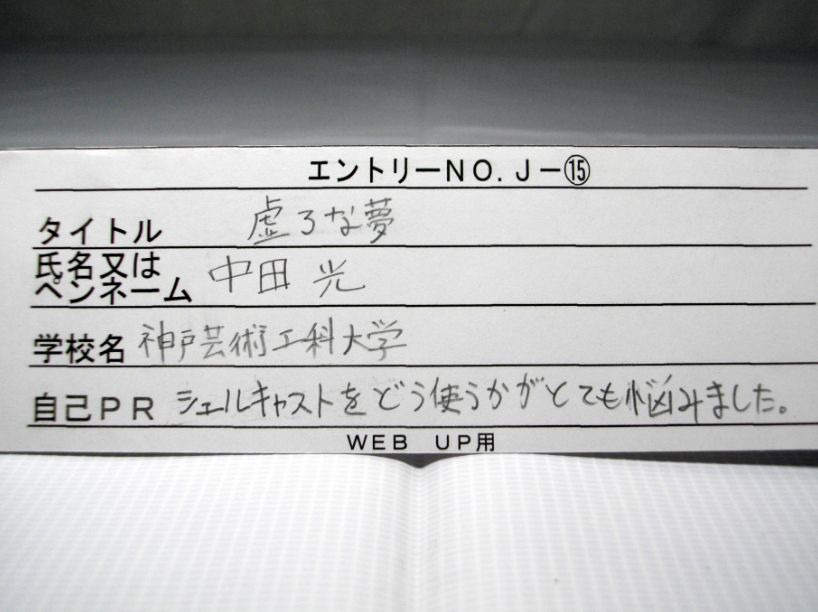 エントリーNO.J－⑮
タイトル 虚ろな夢
氏名又は
ペンネーム 中田 光
学校名 神戸芸術工科大学
自己PR シェルキャストをどう使うかがとても悩みました。
WEB UP用